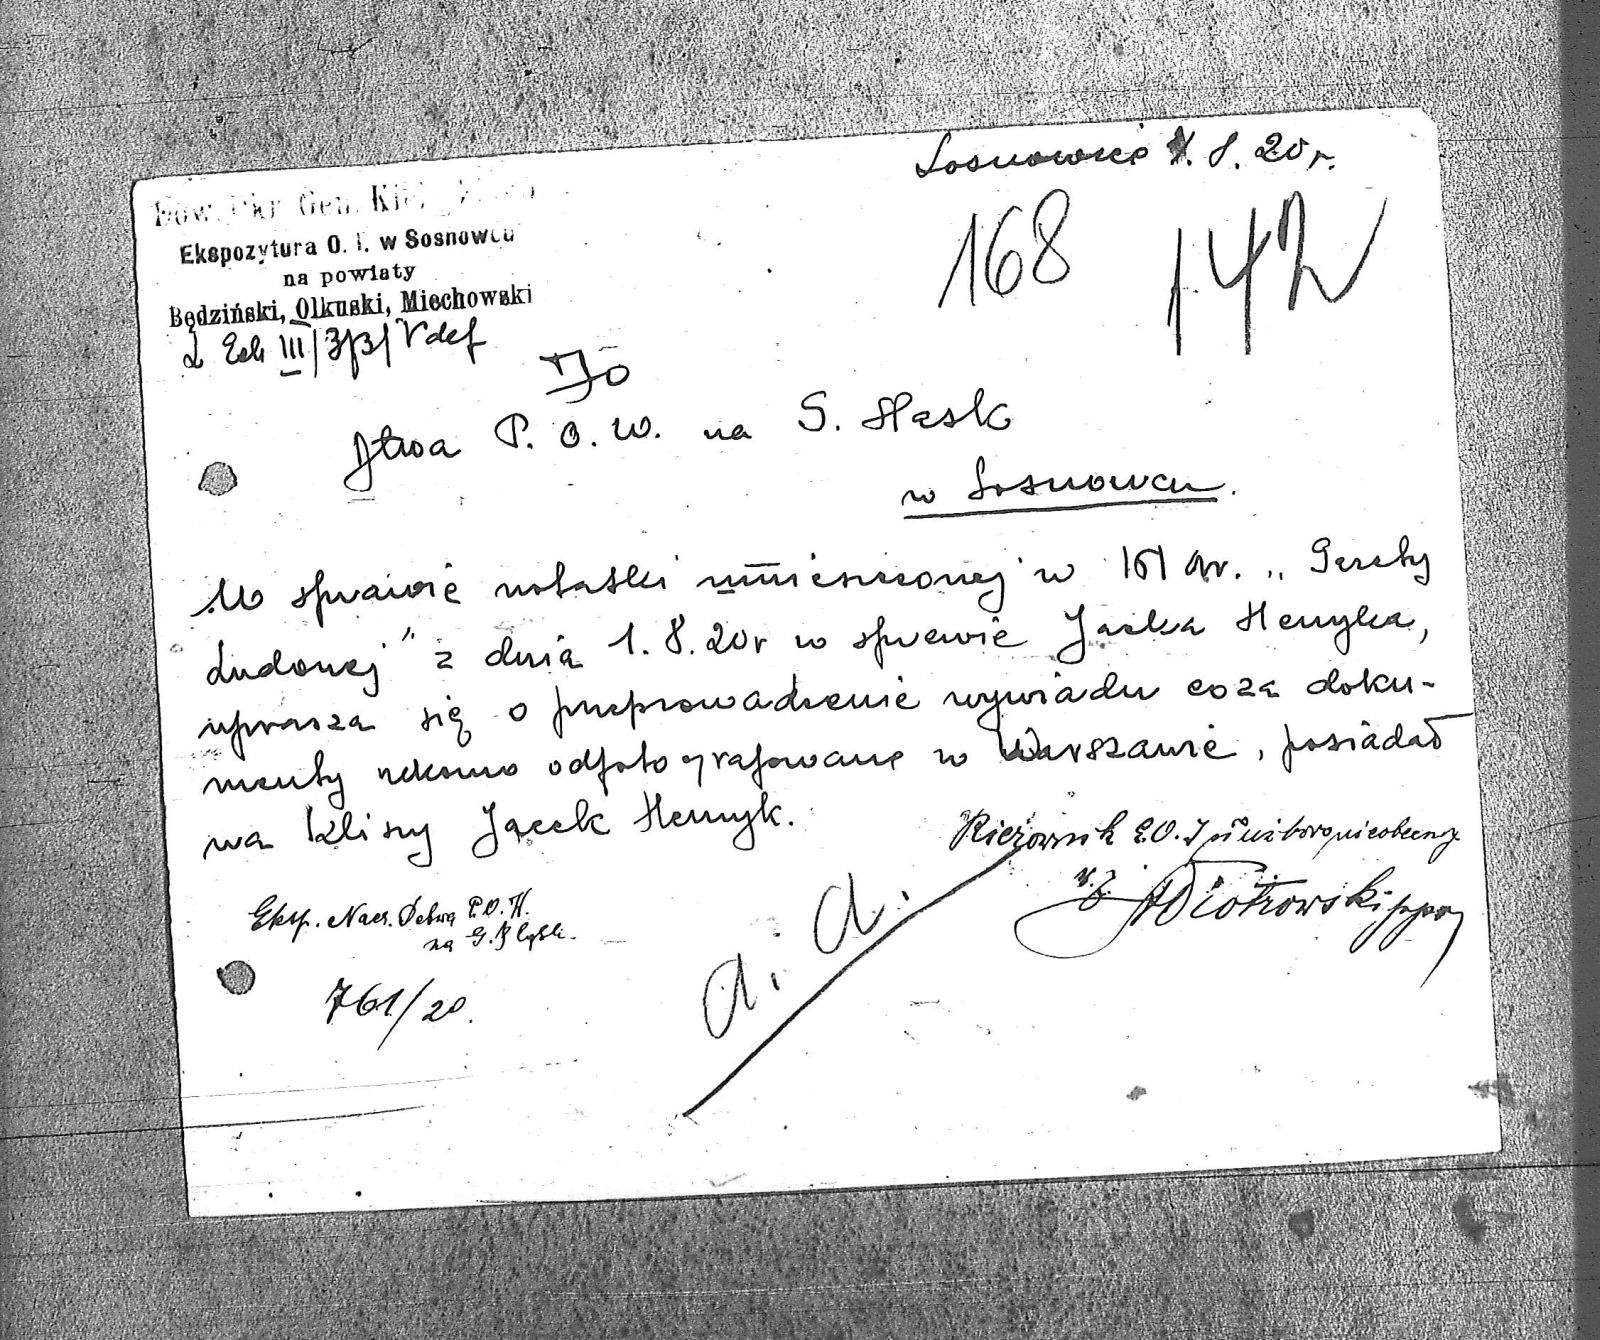 Sosnowiec 4. 8. 20 r.
168 142
Dow. Okr. Gen. Kiel
Ekspozytura O. I. w Sosnowcu
na powiaty
Będziński, Olkuski, Miechowski
L. III/3/3/V def
Do
Dtwa P. O. W. na G. Śląsk
w Sosnowcu.
W sprawie notatki umieszczonej w 161 nr. „Gazety
Ludowej" z dnia 1. 8. 20 r w sprawie Jacka Henryka,
uprasza się o przeprowadzenie wywiadu co za doku-
menty rzekomo odfotografowane w Warszawie, posiadał
na kliszy Jacek Henryk.
Kierownik E.O.I
Piotrowski ppor
Eksp. Nacz. Dctwa P.O.W.
na G. Śląsk.
761/20.
a. a.